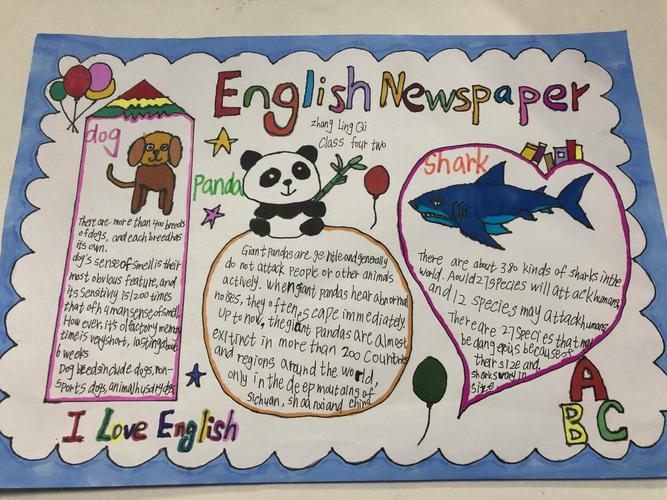 English Newspaper
zhang Ling Qi
Class four two
dog
There are more than 400 breeds
of dogs, and each breed has
its own.
dog's sense of smell is their
most obvious feature, and
its sensitivity is 1200 times
that of human sense of smell
However its olfactory memory
time is very short, lasting about
6 weeks
Dog breeds include dogs, non-
sports dogs, animal husdry dogs
Panda
Giant pandas are gentile and generally
do not attack people or other animals
actively. when giant pandas hear abnormal
noises, they often scape immediately.
Up to now, the giant pandas are almost
exitinct in more than 200 countries
and regions around the world,
only in the deep moutaing of
sichuan, shaanxi and china
Shark
There are about 380 kinds of sharks in the
world. Aould 27 species will attack humans
and 12 species may attack humans
There are 27 species that may
be dangerous because of
their size and.
sharks vary in
size.
I Love English
A
B C